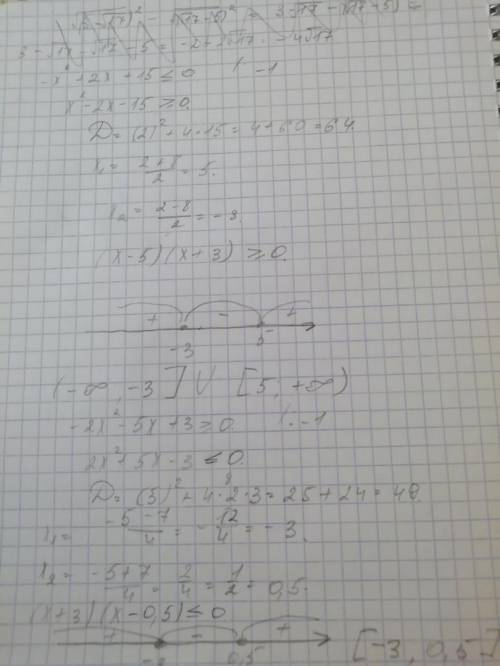 -x² + 2x + 15 ≤ 0 | · -1
x² - 2x - 15 ≥ 0.
D = (2)² + 4·15 = 4 + 60 = 64.
x₁ = (2+8)/2 = 5.
x₂ = (2-8)/2 = -3.
(x-5)(x+3) ≥ 0.
+ - +
-3 5
(-∞, -3] ∪ [5; +∞)
-2x² - 5x + 3 ≥ 0 | · -1
2x² + 5x - 3 ≤ 0.
D = (5)² + 4·2·3 = 25 + 24 = 49.
x₁ = (-5-7)/4 = -12/4 = -3.
x₂ = (-5+7)/4 = 2/4 = 1/2 = 0,5.
(x+3)(x-0,5) ≤ 0
+ - +
-3 0,5 [-3, 0,5]